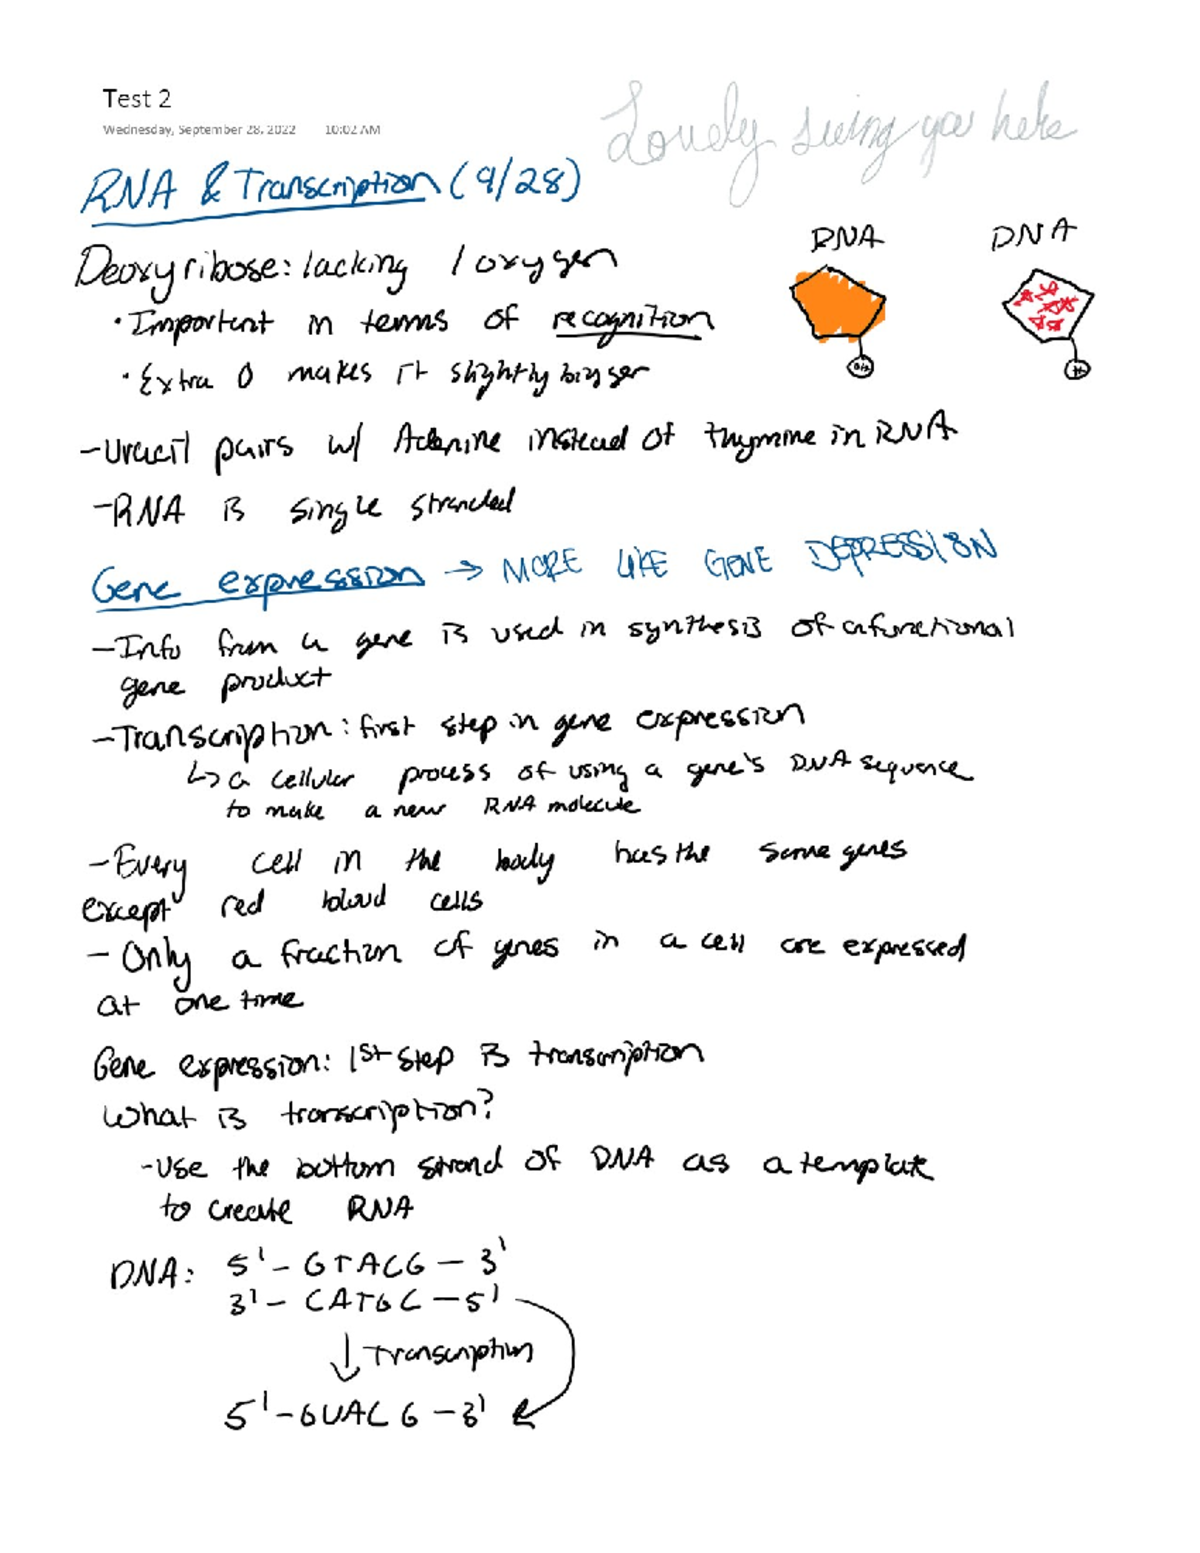 Test 2
Wednesday, September 28, 2022 10:02 AM
Lovely seeing you here
RNA & Transcription (9/28)
RNA DNA
Deoxyribose: lacking 1 oxygen
• Important in terms of recognition
• Extra O makes it slightly bigger
OH H
- Uracil pairs w/ Adenine instead of thymine in RNA
- RNA is single stranded
Gene expression → MORE LIKE GENE DEPRESSION
- Info from a gene is used in synthesis of a functional
gene product
- Transcription: first step in gene expression
↳ a cellular process of using a gene's DNA sequence
to make a new RNA molecule
- Every cell in the body has the same genes
except red blood cells
- Only a fraction of genes in a cell are expressed
at one time
Gene expression: 1st step is transcription
What is transcription?
- Use the bottom strand of DNA as a template
to create RNA
DNA: 5' - GTACG - 3'
3' - CATGC - 5'
↓ Transcription
5' - GUACG - 3'